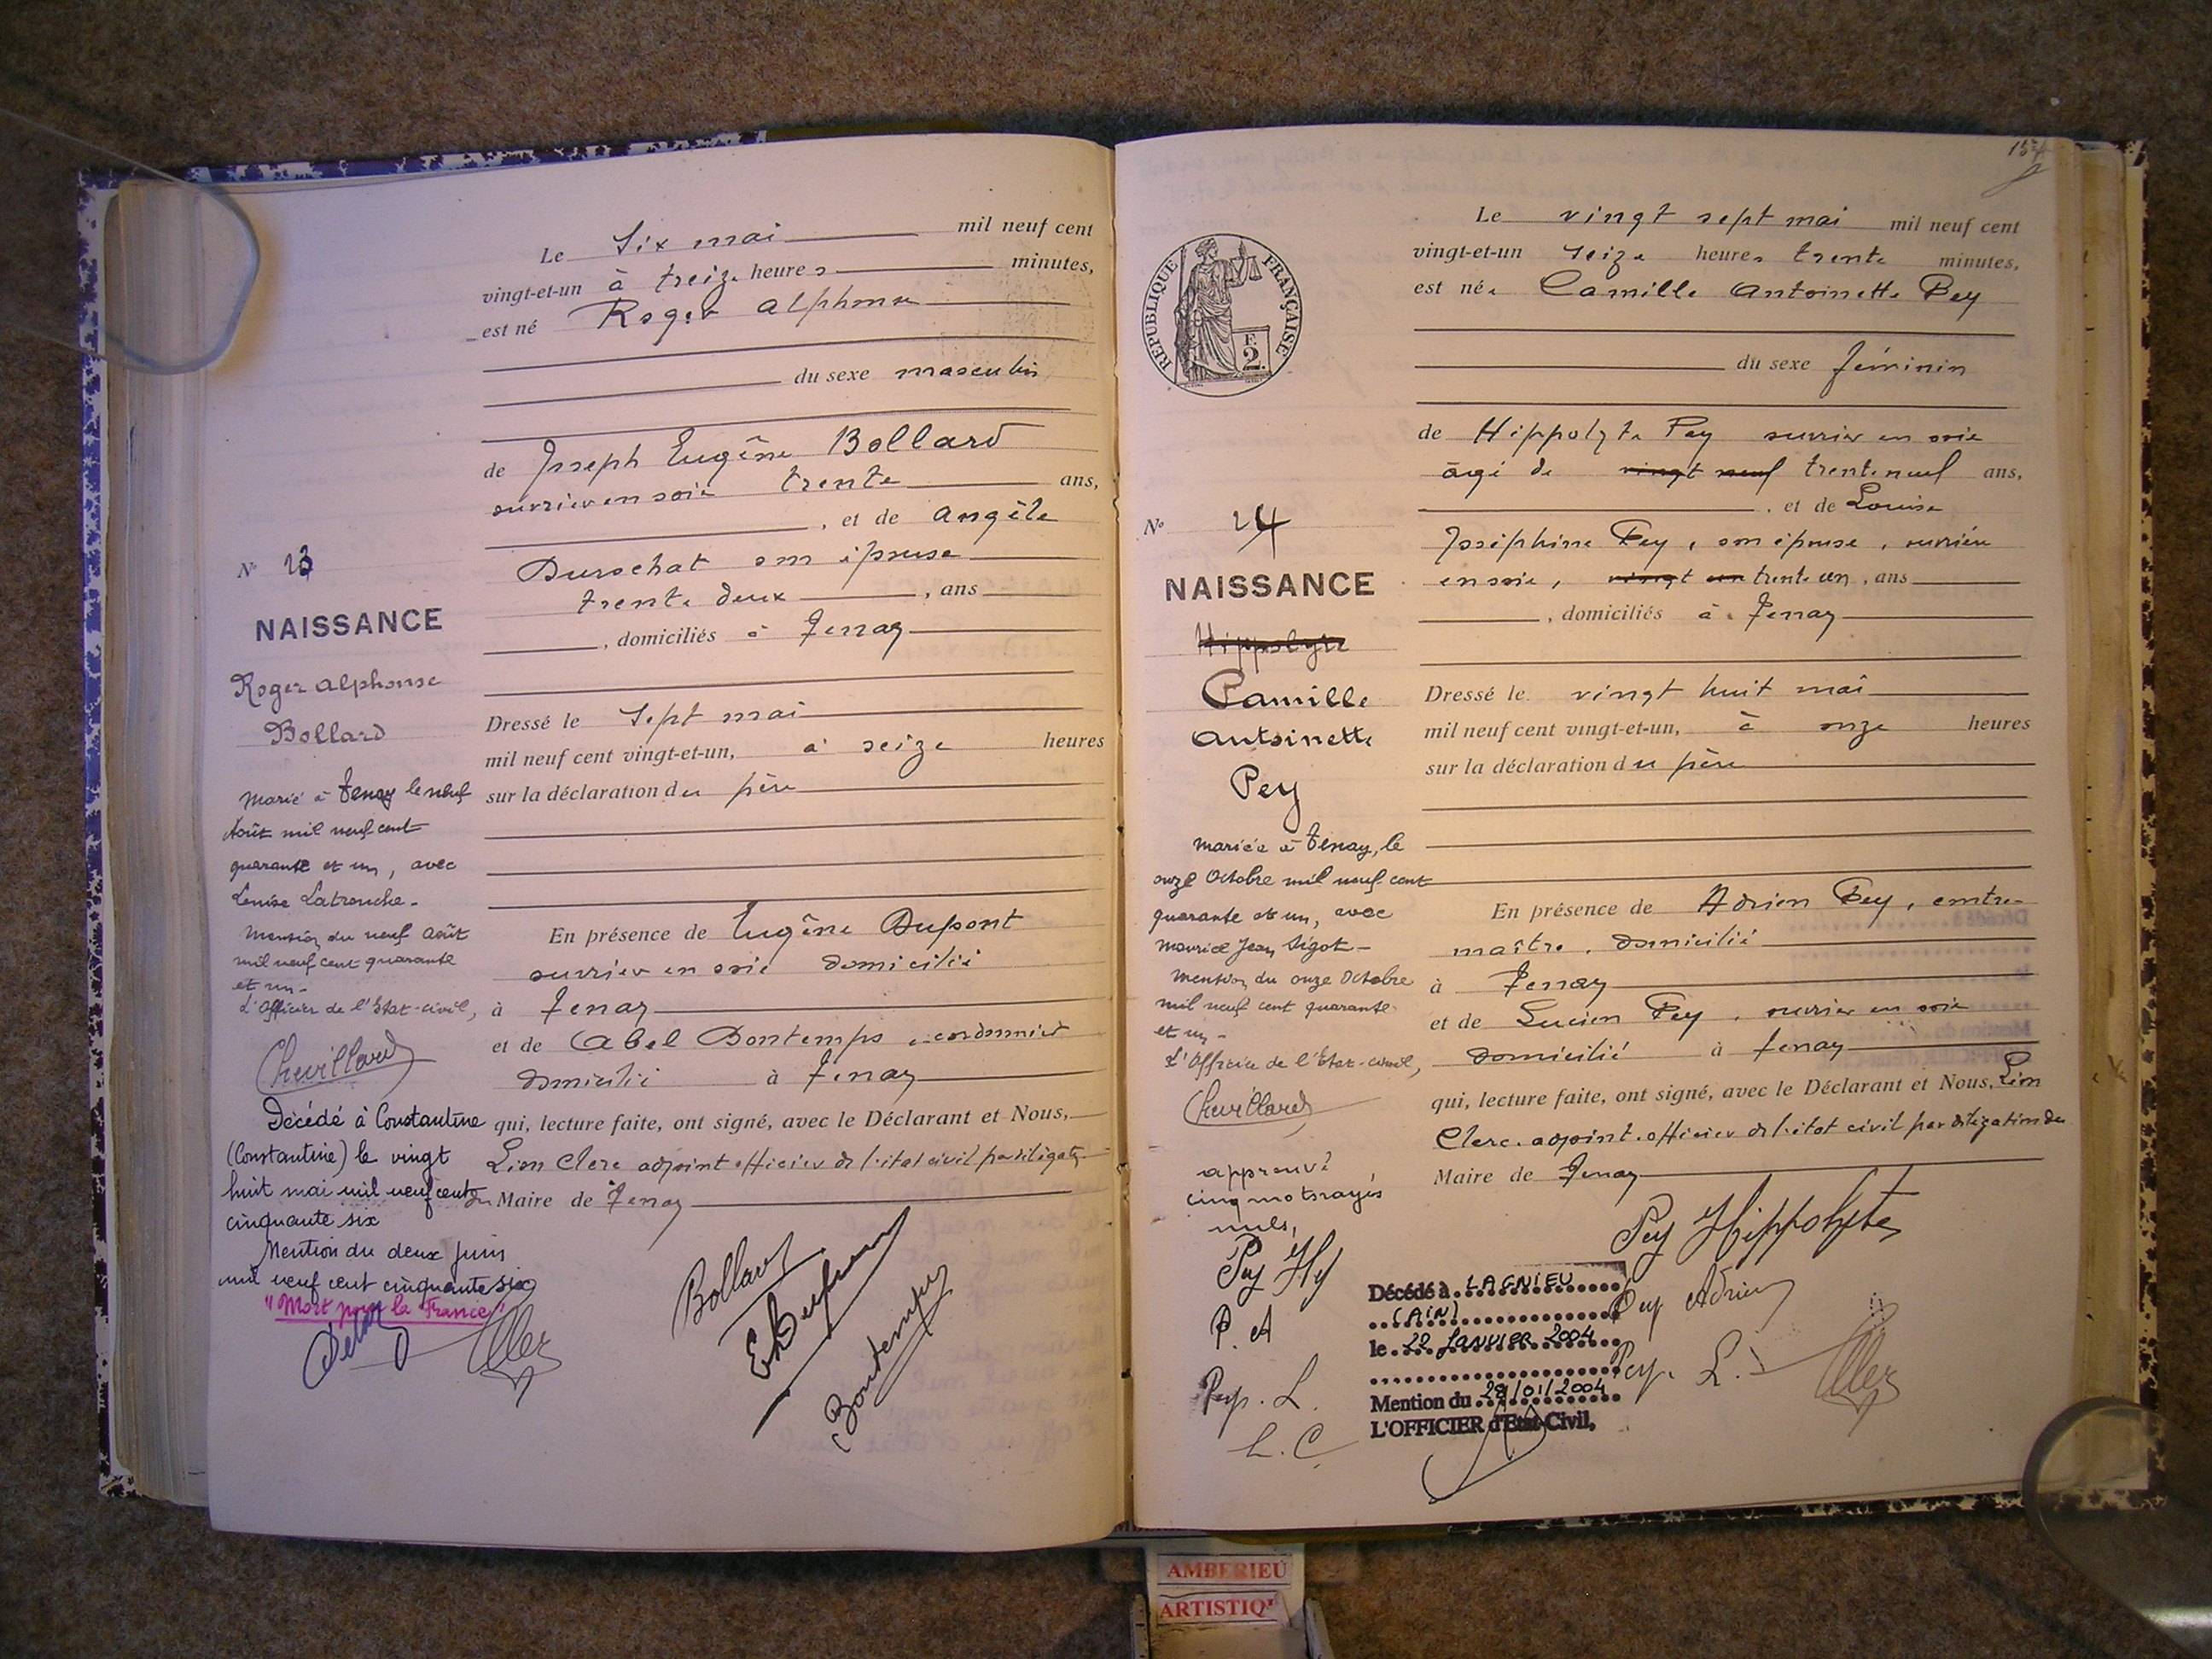 Le Six mai mil neuf cent
vingt-et-un à treize heures minutes,
est né Roger Alphonse
du sexe masculin
de Joseph Eugène Bollard
ouvrier en soie trente ans,
, et de Angèle
Durochat son épouse
trente deux , ans
, domiciliés à Tenay
Dressé le Sept mai
mil neuf cent vingt-et-un, à seize heures
sur la déclaration du père
En présence de Eugène Dupont
ouvrier en soie domicilié
à Tenay
et de Abel Bontemps, cordonnier
domicilié à Tenay
qui, lecture faite, ont signé, avec le Déclarant et Nous,
Léon Clerc adjoint officier de l'état civil par délégat.
du Maire de Tenay
Bollard
E Dupont
Bontemps
N° 23
NAISSANCE
Roger Alphonse
Bollard
Marié à Tenay le neuf
Août mil neuf cent
quarante et un, avec
Louise Latrouche -
Mention du neuf Août
mil neuf cent quarante
et un -
L'Officier de l'Etat-civil,
Chevillard
Décédé à Constantine
(Constantine) le vingt
huit mai mil neuf cent
cinquante six
Mention du deux Juin
mil neuf cent cinquante six
"Mort pour la France"
154
Le vingt sept mai mil neuf cent
vingt-et-un seize heures trente minutes,
est née Camille Antoinette Pey
du sexe féminin
de Hippolyte Pey ouvrier en soie
âgé de vingt neuf trente neuf ans,
, et de Louise
Joséphine Pey, son épouse, ouvrière
en soie, vingt un trente un, ans
, domiciliés à Tenay
Dressé le vingt huit mai
mil neuf cent vingt-et-un, à onze heures
sur la déclaration du père
En présence de Adrien Pey, contre-
maître, domicilié
à Tenay
et de Lucien Pey, ouvrier en soie
domicilié à Tenay
qui, lecture faite, ont signé, avec le Déclarant et Nous, Léon
Clerc, adjoint, officier de l'état civil par délégation du
Maire de Tenay
Pey Hippolyte
Pey Adrien
Pey. L.
RÉPUBLIQUE FRANÇAISE
F.
2.
N° 24
NAISSANCE
Hippolyte
Camille
Antoinette
Pey
Mariée à Tenay, le
onze Octobre mil neuf cent
quarante et un, avec
Maurice Jean Sigot -
Mention du onze Octobre
mil neuf cent quarante
et un -
L'Officier de l'Etat-civil,
Chevillard
approuvé
cinq mots rayés
nuls,
Pey Hy
P. A
Pey. L.
L. C.
Décédé à LAGNIEU
(AIN)
le 22 JANVIER 2004
Mention du 28/01/2004
L'OFFICIER d'Etat-Civil,
AMBERIEU